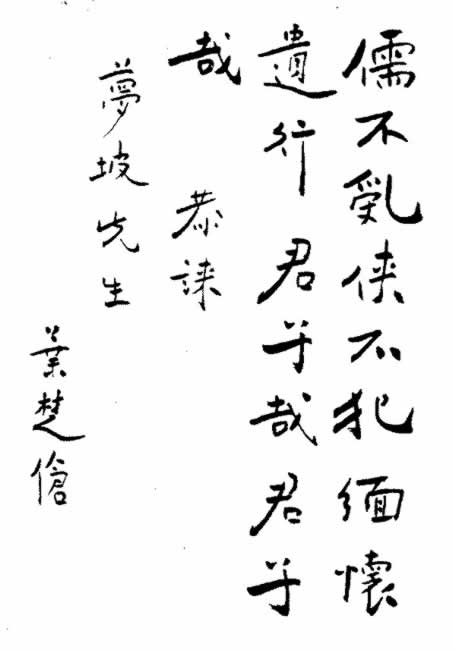 儒不亂侠不犯緬懷
遺行君子哉君子
哉 恭誄
夢坡先生
葉楚傖